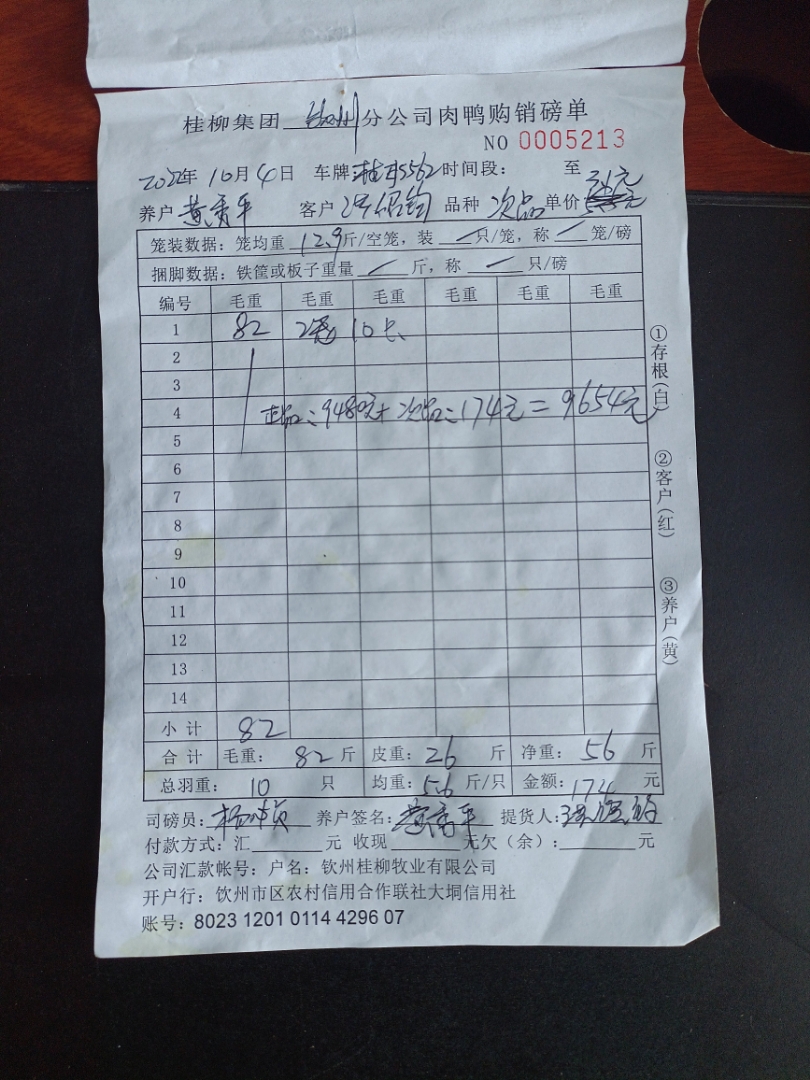 桂柳集团 钦州 分公司肉鸭购销磅单
NO 0005213
2022年 10月 4日 车牌 时间段： 至
养户 黄秀平 客户 品种 次品 单价 3.1元
笼装数据：笼均重 12.9 斤/空笼，装 / 只/笼，称 / 笼/磅
捆脚数据：铁筐或板子重量 / 斤，称 / 只/磅
编号 毛重 毛重 毛重 毛重 毛重 毛重
1 82 2笼 10只
2
3
4 正品：9480元+次品：174元=9654元
5
6
7
8
9
10
11
12
13
14
小计 82
合计 毛重： 82 斤 皮重：26 斤 净重：56 斤
总羽重： 10 只 均重：5.6 斤/只 金额：174 元
司磅员： 养户签名：黄秀平 提货人：
付款方式：汇 元 收现 元欠（余）： 元
公司汇款帐号：户名：钦州桂柳牧业有限公司
开户行：钦州市区农村信用合作联社大垌信用社
账号：8023 1201 0114 4296 07
①存根（白）
②客户（红）
③养户（黄）